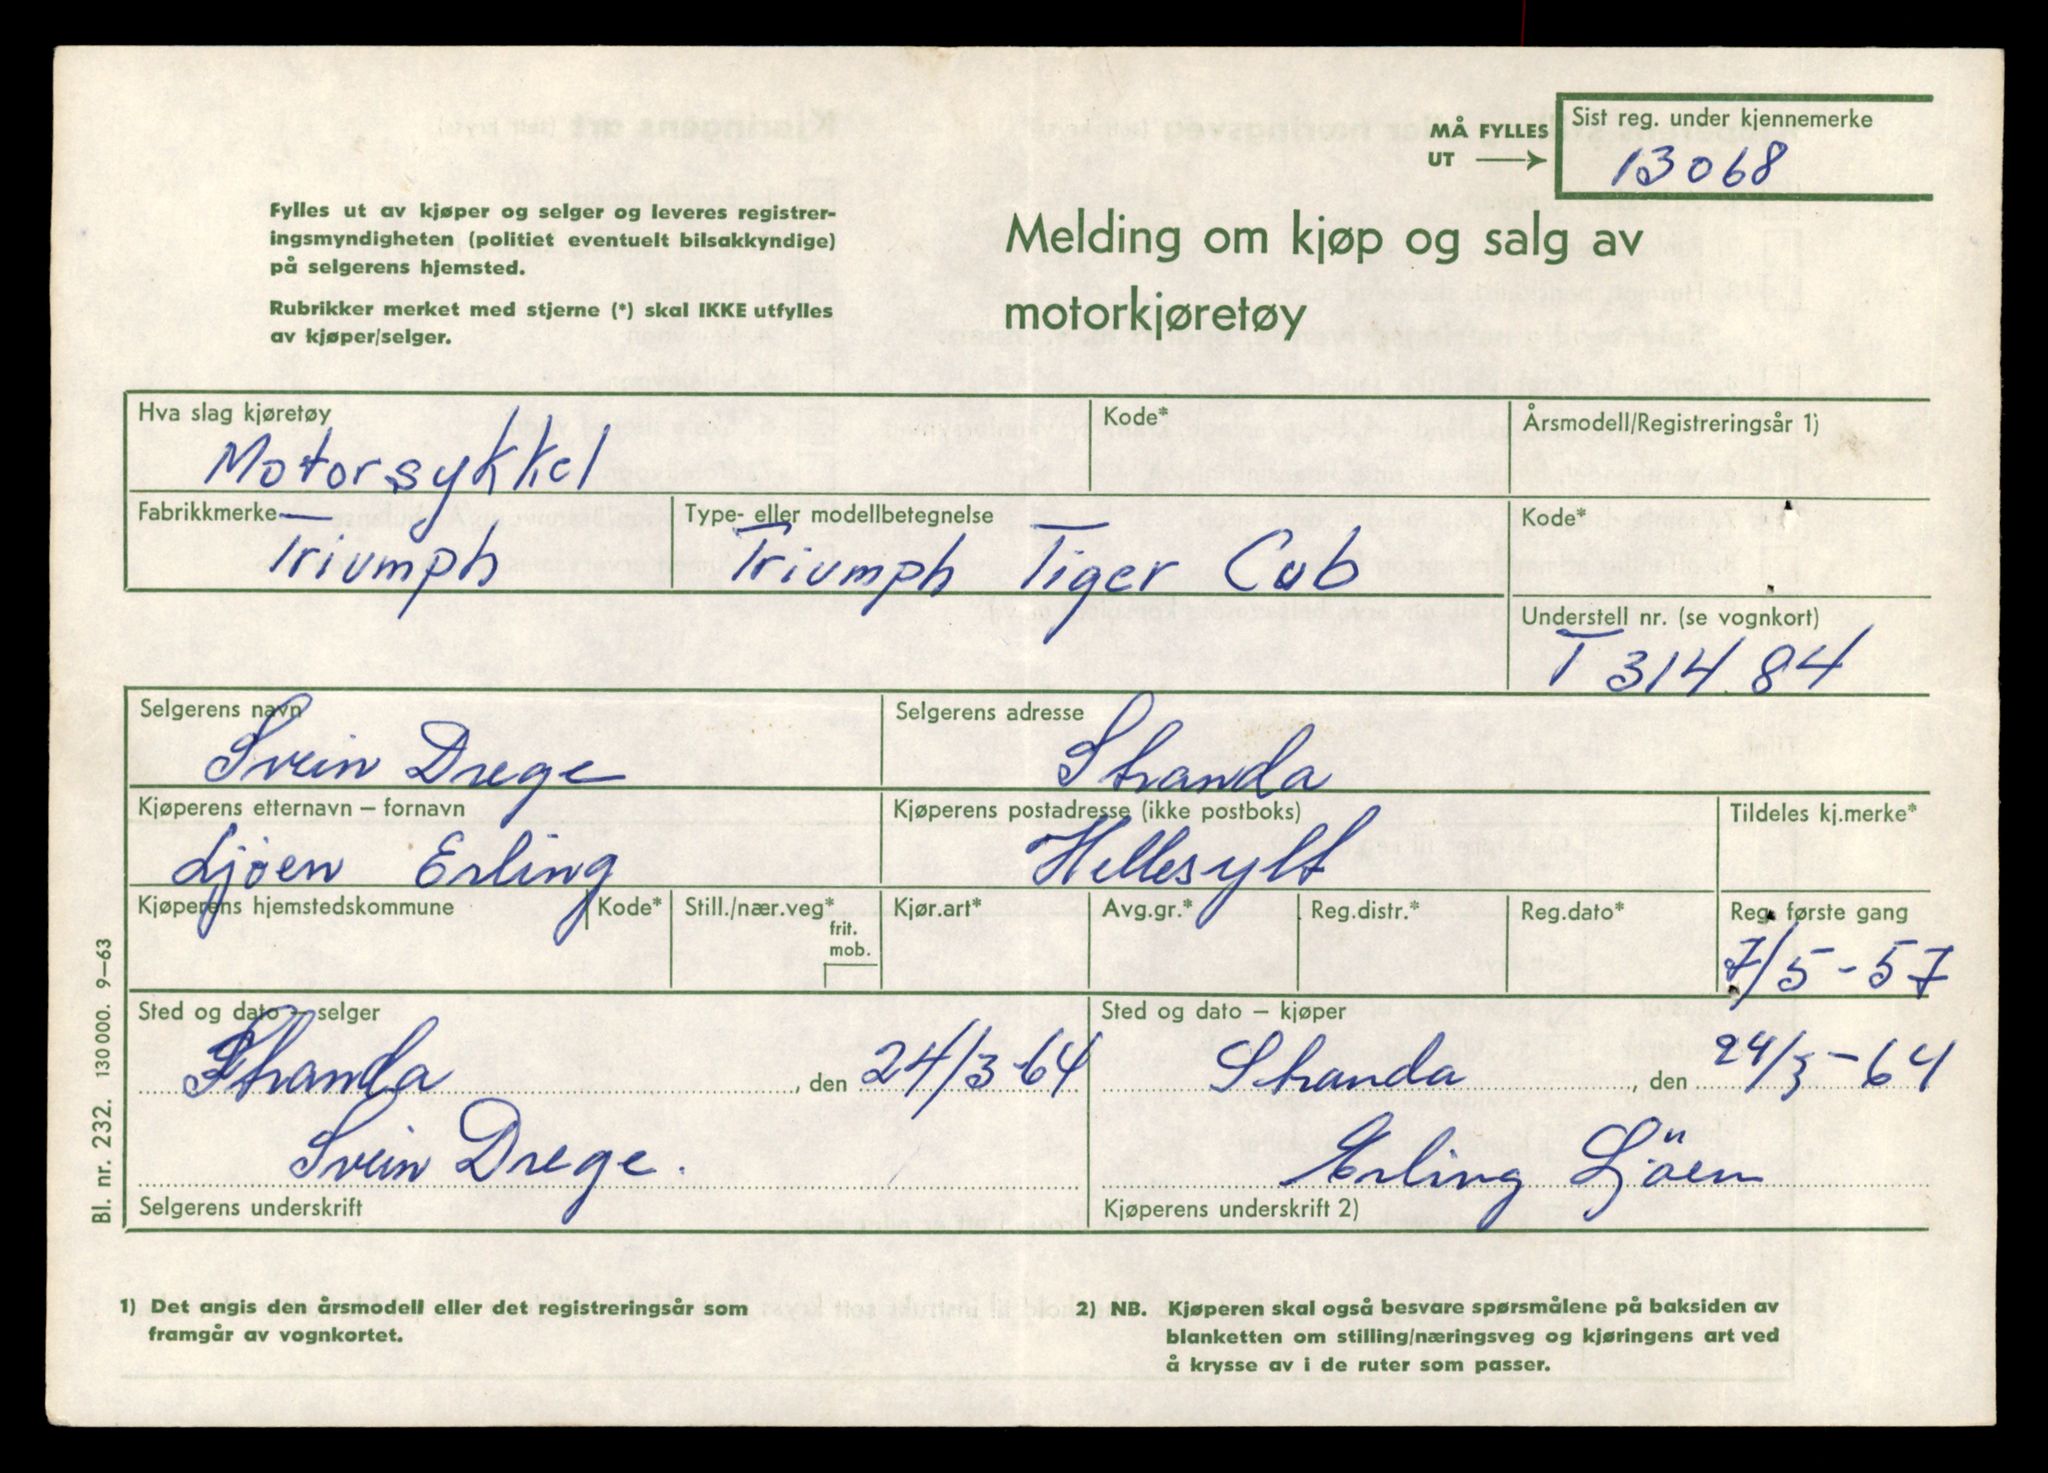 MÅ FYLLES UT
Sist reg. under kjennemerke
13068
Fylles ut av kjøper og selger og leveres registrer-
ingsmyndigheten (politiet eventuelt bilsakkyndige)
på selgerens hjemsted.
Rubrikker merket med stjerne (*) skal IKKE utfylles
av kjøper/selger.
Melding om kjøp og salg av
motorkjøretøy
Hva slag kjøretøy
Motorsykkel
Kode*
Årsmodell/Registreringsår 1)
Fabrikkmerke
Triumph
Type- eller modellbetegnelse
Triumph Tiger Cub
Kode*
Understell nr. (se vognkort)
T 31484
Selgerens navn
Svein Drege
Selgerens adresse
Stranda
Kjøperens etternavn – fornavn
Ljöen Erling
Kjøperens postadresse (ikke postboks)
Hellesylt
Tildeles kj.merke*
Kjøperens hjemstedskommune
Kode*
Still./nær.veg*
frit.
mob.
Kjør.art*
Avg.gr.*
Reg.distr.*
Reg.dato*
Reg. første gang
7/5-57
Sted og dato – selger
Stranda, den 24/3-64
Svein Drege.
Selgerens underskrift
Sted og dato – kjøper
Stranda, den 24/3-64
Erling Ljöen
Kjøperens underskrift 2)
Bl. nr. 232. 130 000. 9–63
1) Det angis den årsmodell eller det registreringsår som
framgår av vognkortet.
2) NB. Kjøperen skal også besvare spørsmålene på baksiden av
blanketten om stilling/næringsveg og kjøringens art ved
å krysse av i de ruter som passer.